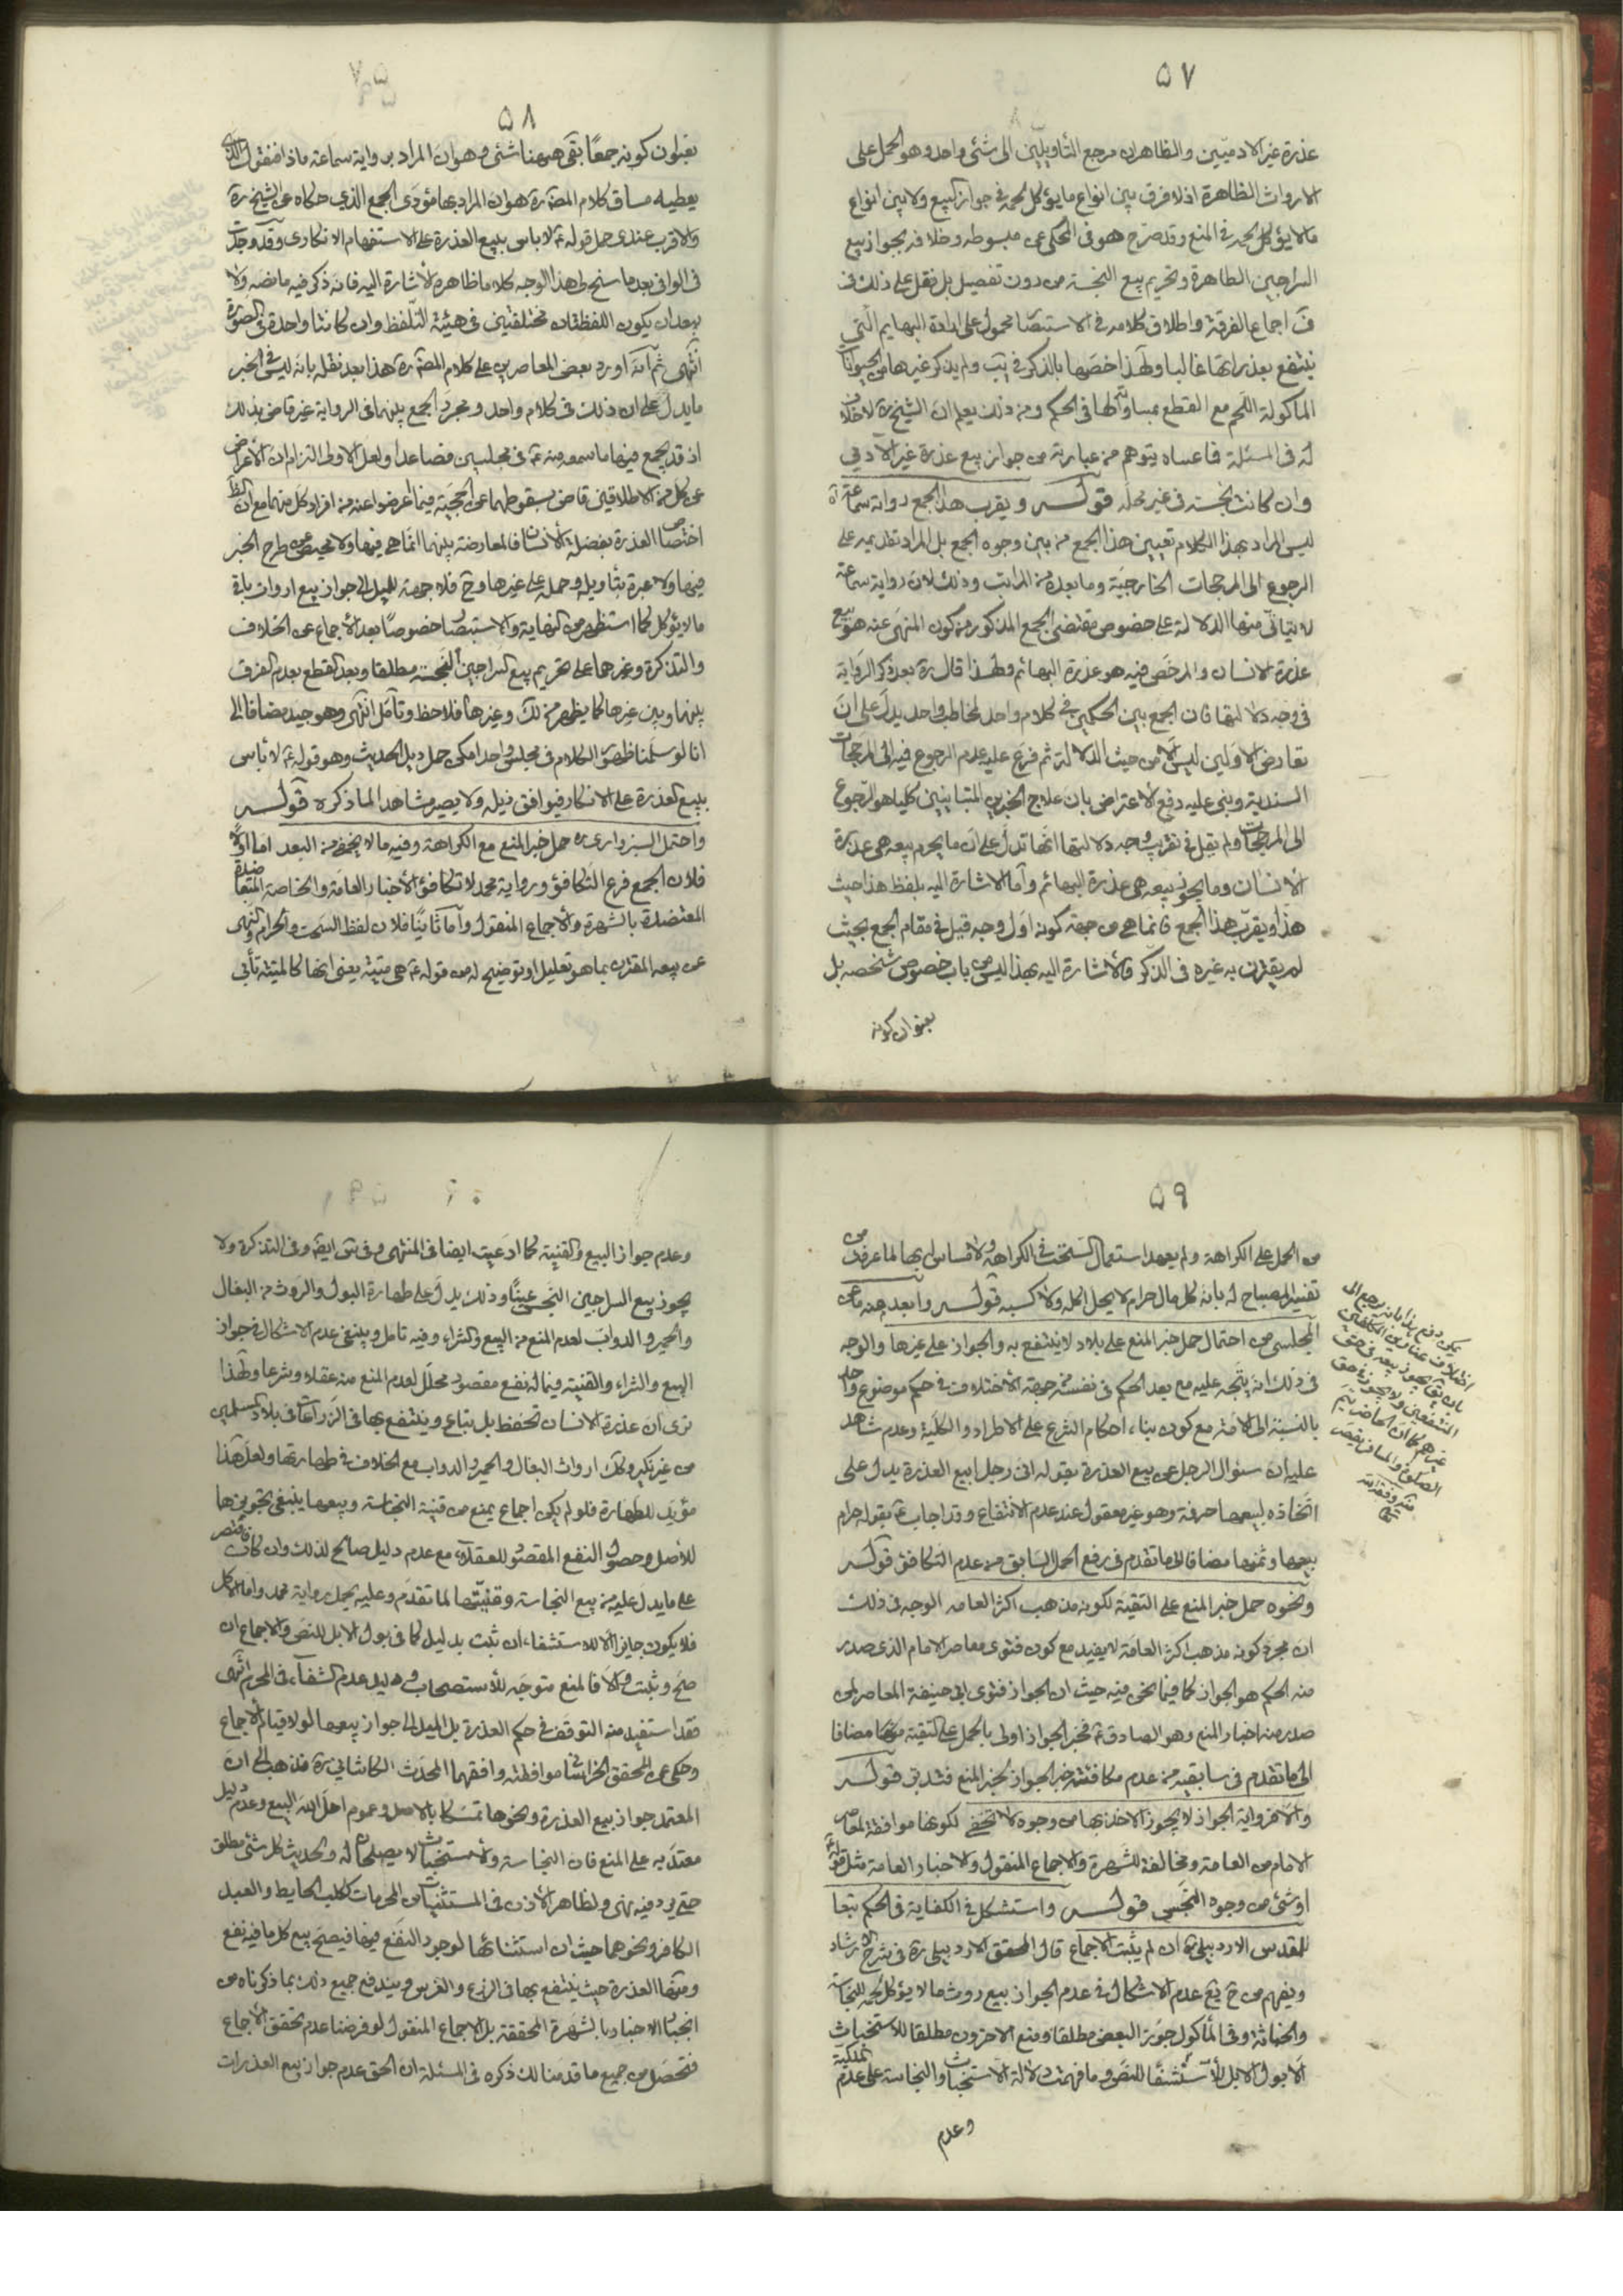 ٥٧
عذرة غير الادميين والظاهر ان مرجع التأويلين الى شئ واحد وهو الحمل على
الارواث الظاهرة اذ لا فرق بين انواع ما يؤكل لحمه في جواز البيع ولا بين انواع
ما لا يؤكل لحمه في المنع وقد صرح هو في المحكى عن مبسوطه وخلافه بجواز بيع
السراجين الطاهرة وتحريم بيع النجسة من دون تفصيل بل نقل على ذلك في
ف اجماع الفرقة واطلاق كلامه في الاستبصا محمول على ارادة البهايم التي
ينتفع بعذراتها غالبا ولهذا خصها بالذكر في يب ولم يذكر غيرها من الحيوانات
الماكولة اللحم مع القطع بمساواتها لها في الحكم ومن ذلك يعلم ان الشيخ ره لا خلاف
له في المسئلة فما عساه يتوهم من عبارته من جواز بيع عذرة غير الآدمي
وان كانت نجسة في غير محله قوله ويقرب هذا الجمع رواية سماعة اه
ليس المراد بهذا الكلام تعيين هذا الجمع من بين وجوه الجمع بل المراد تقديمه على
الرجوع الى المرجحات الخارجية وما بعده من المراتب وذلك لان رواية سماعة
لا يتأتى منها الدلالة على خصوص مقتضى الجمع المذكور من كون المنهى عنه هو بيع
عذرة الانسان والمرخص فيه هو عذرة البهائم ولهذا قال ره بعد ذكر الرواية
في وجه دلالتها فان الجمع بين الحكمين في كلام واحد لمخاطب واحد يدل على ان
تعارض الاولين ليس الا من حيث الدلالة ثم فرع عليه عدم الرجوع فيه الى المرجحات
السندية وبنى عليه دفع الاعتراض بان علاج الخبرين المتباينين كليا هو الرجوع
الى المرجحات ولم يقل في تقريب وجه دلالتها انها تدل على ان ما يحرم بيعه هى عذرة
الانسان وما يجوز بيعه هى عذرة البهائم وأما الاشارة اليه بلفظ هذا حيث
هذا ويقرب هذا الجمع فانما هى من جهة كونه اول وجه قيل في مقام الجمع بحيث
لم يقترن به غيره في الذكر فالاشارة اليه بهذا ليس من باب خصوص شخصه بل
بعنوان كونه
٥٨
بعنوان كونه جمعا بقى هيهنا شئ وهو ان المراد برواية سماعة ماذا فنقول الذى
يعطيه مساق كلام المصنف ره هو ان المراد بها مؤدى الجمع الذي حكاه عن الشيخ ره
والاقرب عندى حمل قوله ع لا باس ببيع العذرة على الاستفهام الانكارى وقد وجدت
في الوافى بعد ما سنح لى هذا الوجه كلاما ظاهره الأشارة اليه فانه ذكر فيه ما نصه ولا
يبعد ان يكون اللفظتان مختلفتين في هيئة التلفظ وان كانتا واحدة في الصورة
انتهى ثم انه اورد بعض المعاصرين على كلام المصنف ره هذا بعد نقله بانه ليس في الخبر
ما يدل على ان ذلك في كلام واحد ومجرد الجمع بينهما في الرواية غير قاض بذلك
اذ قد يجمع فيها ما سمعه منه ع في مجلسين فصاعدا ولعل الاولى التزام ان الاعراض
عن كل من الاطلاقين قاض بسقوطهما عن الحجية فيما اعرضوا عنه من افراد كل منهما مع ان الظ
اختصاص العذرة بفضلة الأنسان فالمعارضة بينهما انما هي فيها ولا محيص من طرح الخبر
فيها ولا عبرة بتأويله وحمله على غيرها وح فلا جهة للميل الى جواز بيع ارواث باقي
ما لا يؤكل كما استظهر من النهاية والاستبصار خصوصًا بعد الأجماع عن الخلاف
والتذكرة وغيرهما على تحريم بيع السراجين النجسة مطلقا وبعد القطع بعدم الفرق
بينها وبين غيرها كما يظهر من لك وغيرها فلاحظ وتأمل انتهى وهو جيد مضافا الى
انا لو سلمنا ظهور الكلام في مجلس واحد امكن حمل ذيل الحديث وهو قوله ع لا بأس
ببيع العذرة على الانكار فيوافق ذيله ولا يصير شاهدا لما ذكره قوله
واحتمل السبزوارى ره حمل خبر المنع مع الكراهة وفيه ما لا يخفى من البعد اما اولا
فلان الجمع فرع التكافؤ ورواية محمد لا تكافؤ الأخبار العامة والخاصة المتعاضدة
المعتضدة بالشهرة والأجماع المنقول وأما ثانيًا فلان لفظ السحت والحرام والنهى
عن بيعه المقترن بما هو تعليل او توضيح له من قوله ع هى ميتة يعنى انها كالميتة تأبى
٥٩
من الحمل على الكراهة ولم يعهد استعمال السحت في الكراهة ولا مساس لها بها لما عرفت من
تفسير المصباح له بانه كل مال حرام لا يحل اكله ولا كسبه قوله وابعد منه ما عن
المجلسى من احتمال حمل خبر المنع على بلاد لا ينتفع به والجواز على غيرها والوجه
في ذلك انه يتجه عليه مع بعد الحكم في نفسه من جهة الاختلاف في حكم موضوع واحد
بالنسبة الى الامة مع كون بناء احكام الشرع على الاطراد والكلية وعدم شاهد
عليه ان سئوال الرجل عن بيع العذرة بقوله انى رجل ابيع العذرة يدل على
اتخاذه لبيعها حرفة وهو غير معقول عند عدم الانتفاع وقد اجاب ع بقوله حرام
بيعها وثمنها مضافا الى ما تقدم في رفع الحمل السابق من عدم التكافؤ قوله
ونحوه حمل خبر المنع على التقية لكونه مذهب اكثر العامه الوجه في ذلك
ان مجرد كونه مذهب اكثر العامة لا يفيد مع كون فتوى معاصر الامام الذى صدر
منه الحكم هو الجواز كما فيما نحن فيه حيث ان الجواز فتوى ابى حنيفة المعاصر لمن
صدر منه اخبار المنع وهو الصادق ع فخبر الجواز اولى بالحمل على التقية منها مضافا
الى ما تقدم في سابقيه من عدم مكافئة خبر الجواز لخبر المنع فتدبر قوله
والاخر رواية الجواز لا يجوز الاخذ بها من وجوه لا تخفى لكونها موافقة لمعاصر
الامام من العامة ومخالفة للشهرة والاجماع المنقول والاخبار العامة مثل قوله ع
او شئ من وجوه النجس قوله واستشكل في الكفاية في الحكم تبعا
للمقدس الاردبيلى ره ان لم يثبت الاجماع قال المحقق الاردبيلى ره في شرح الارشاد
ويفهم من ح يع عدم الاشكال في عدم الجواز ببيع روث ما لا يؤكل لحمه للنجاسة
والخباثة وفي المأكول جوزه البعض مطلقا ومنع الاخرون مطلقا للاستخباث
الا بول الابل للأستشفاء للنص وما فهمت دلالة الاستخباث والنجاسة على عدم الملكية
وعدم
يمكن دفع هذا بانه يرجع الى
اختلاف عناوين المكلفين
بان يقال يجوز بيعه في حق
المنتفعين ولا يجوز في حق
غيرهم كما ان الحاضر يتم
الصلوة والمسافر يقصر
٦٠
وعدم جواز البيع والقنية كما ادعيت ايضا في المنتهى وفى ايضا وفى التذكرة ولا
يجوز بيع السراجين النجس عينًا وذلك يدل على طهارة البول والروث من البغال
والحمير والدواب لعدم المنع من البيع والشراء وفيه تامل وينبغى عدم الاشكال في جواز
البيع والشراء والقنية فيما له نفع مقصود محلل لعدم المنع منه عقلا وشرعا ولهذا
ترى ان عذرة الانسان تحفظ بل تباع وينتفع بها في الزراعات في بلاد المسلمين
من غير نكير وكك ارواث البغال والحمير والدواب مع الخلاف في طهارتها ولعل هذا
مؤيد للطهارة فلو لم يكن اجماع يمنع من قنية النجاسة وبيعها ينبغى تجويزها
للأصل وحصول النفع المقصود للعقلاء مع عدم دليل صالح لذلك وان كان فتقتصر
على ما يدل عليه من بيع النجاسة وقنيتها لما تقدم وعليه يحمل رواية محمد واما الاكل
فلا يكون جايزا الا للاستشفاء ان ثبت بدليل كما في بول الابل للنص والاجماع ان
صح وثبت والا فالمنع متوجه للأستصحاب ودليل عدم الشفاء في المحرم انتهى
فقد استفيد منه التوقف في حكم العذرة بل الميل الى جواز بيعها لولا قيام الاجماع
وحكى عن المحقق الخراسانى موافقته وافقهما المحدث الكاشانى ره فذهب الى ان
المعتمد جواز بيع العذرة ونحوها تمسكا بالاصل وعموم احل الله البيع وعدم دليل
معتد به على المنع فان النجاسة والاستخباث لا يصلحان له ولحديث كل شئ مطلق
حتى يرد فيه نهى ولظاهر الأذن في المستثنيات من المحرمات ككلب الحايط والعبد
الكافر ونحوهما حيث ان استثنائها لوجود النفع فيها فيصح بيع كل ما فيه نفع
ومنها العذرة حيث ينتفع بها في الزرع والغرس ويندفع جميع ذلك بما ذكرناه من
انجبار الاخبار بالشهرة المحققة بل الاجماع المنقول لو فرضنا عدم تحقق الاجماع
فتحصل من جميع ما قدمنا لك ذكره في المسئلة ان الحق عدم جواز بيع العذرات